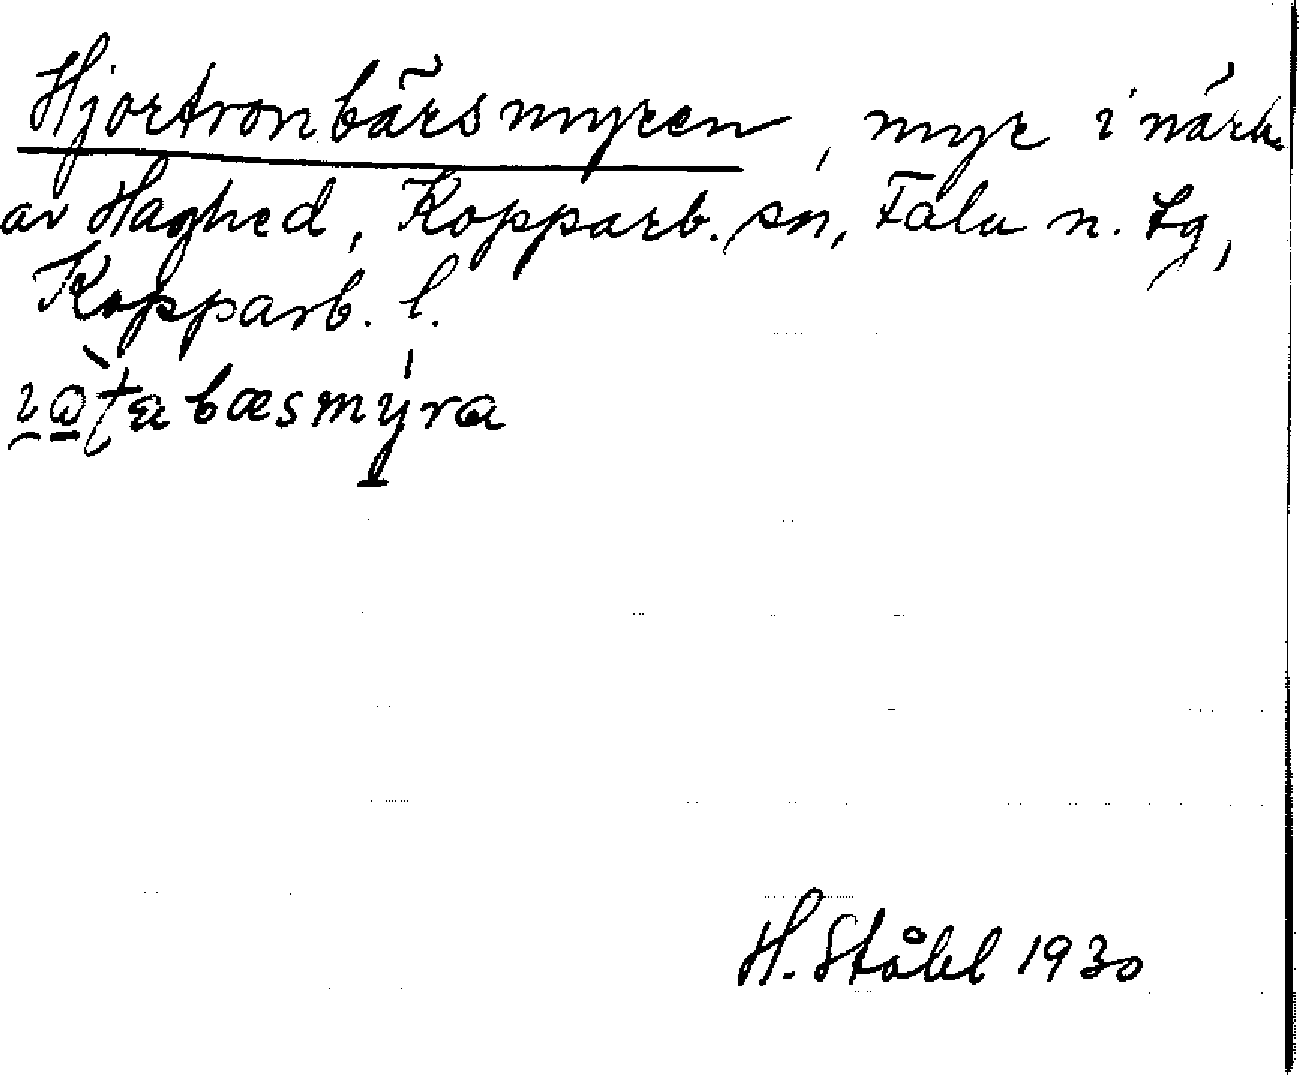 Hjortronbärsmyren, myr i närh.
av Haghed, Kopparb. sn, Falu n. tg,
Kopparb. l.
bæsmýra
H. Ståhl 1930